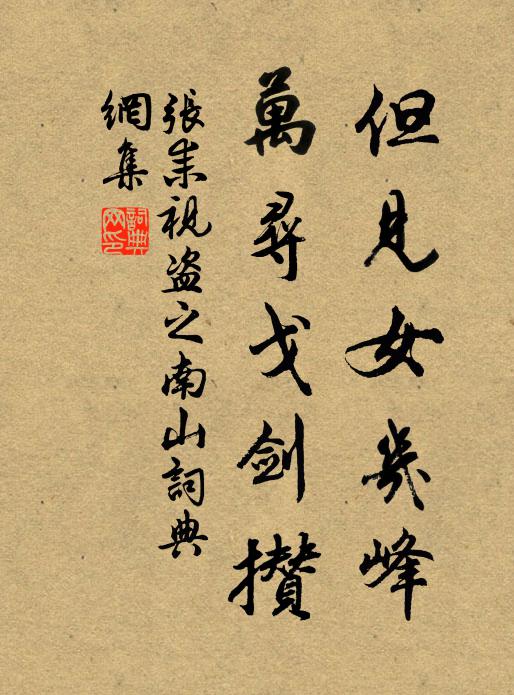 但見女幾峰
萬尋戈劍攢
張耒視盗之南山詞典
網集
詞典
网印